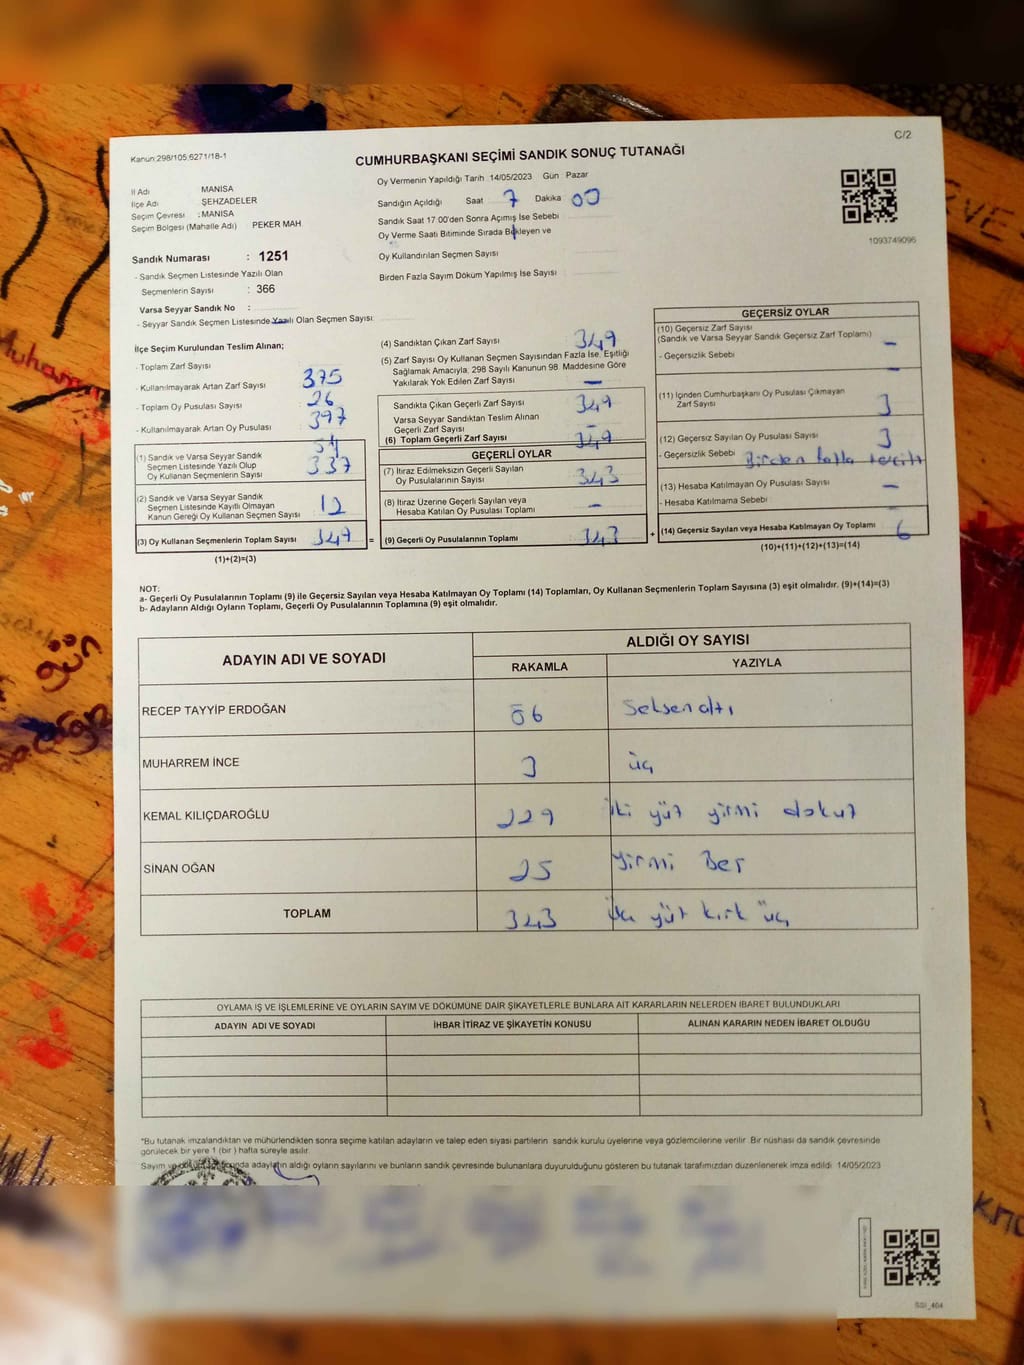 C/2
Kanun:298/105.6271/18-1
CUMHURBAŞKANI SEÇİMİ SANDIK SONUÇ TUTANAĞI
İl Adı MANİSA
İlçe Adı ŞEHZADELER
Seçim Çevresi : MANİSA
Seçim Bölgesi (Mahalle Adı) PEKER MAH.
Oy Vermenin Yapıldığı Tarih 14/05/2023 Gün Pazar
Sandığın Açıldığı Saat 7 Dakika 00
Sandık Saat 17.00'den Sonra Açımış İse Sebebi
Oy Verme Saati Bitiminde Sırada Bekleyen ve
Oy Kullandırılan Seçmen Sayısı
Birden Fazla Sayım Döküm Yapılmış İse Sayısı
1093749096
Sandık Numarası : 1251
- Sandık Seçmen Listesinde Yazılı Olan
Seçmenlerin Sayısı : 366
Varsa Seyyar Sandık No :
- Seyyar Sandık Seçmen Listesinde Yazılı Olan Seçmen Sayısı:
İlçe Seçim Kurulundan Teslim Alınan;
- Toplam Zarf Sayısı 375
- Kullanılmayarak Artan Zarf Sayısı 26
- Toplam Oy Pusulası Sayısı 397
- Kullanılmayarak Artan Oy Pusulası
(1) Sandık ve Varsa Seyyar Sandık
Seçmen Listesinde Yazılı Olup
Oy Kullanan Seçmenlerin Sayısı 337
(2) Sandık ve Varsa Seyyar Sandık
Seçmen Listesinde Kayıtlı Olmayan
Kanun Gereği Oy Kullanan Seçmen Sayısı 12
(3) Oy Kullanan Seçmenlerin Toplam Sayısı 349 =
(1)+(2)=(3)
(4) Sandıktan Çıkan Zarf Sayısı 349
(5) Zarf Sayısı Oy Kullanan Seçmen Sayısından Fazla İse, Eşitliği
Sağlamak Amacıyla, 298 Sayılı Kanunun 98. Maddesine Göre
Yakılarak Yok Edilen Zarf Sayısı —
Sandıkta Çıkan Geçerli Zarf Sayısı 349
Varsa Seyyar Sandıktan Teslim Alınan
Geçerli Zarf Sayısı —
(6) Toplam Geçerli Zarf Sayısı 349
GEÇERLİ OYLAR
(7) İtiraz Edilmeksizin Geçerli Sayılan
Oy Pusulalarının Sayısı 343
(8) İtiraz Üzerine Geçerli Sayılan veya
Hesaba Katılan Oy Pusulası Toplamı —
(9) Geçerli Oy Pusulalarının Toplamı 343 +
GEÇERSİZ OYLAR
(10) Geçersiz Zarf Sayısı
(Sandık ve Varsa Seyyar Sandık Geçersiz Zarf Toplamı) —
- Geçersizlik Sebebi —
(11) İçinden Cumhurbaşkanı Oy Pusulası Çıkmayan
Zarf Sayısı 3
(12) Geçersiz Sayılan Oy Pusulası Sayısı 3
- Geçersizlik Sebebi Birden fazla tercih
(13) Hesaba Katılmayan Oy Pusulası Sayısı —
- Hesaba Katılmama Sebebi
(14) Geçersiz Sayılan veya Hesaba Katılmayan Oy Toplamı 6
(10)+(11)+(12)+(13)=(14)
NOT:
a- Geçerli Oy Pusulalarının Toplamı (9) ile Geçersiz Sayılan veya Hesaba Katılmayan Oy Toplamı (14) Toplamları, Oy Kullanan Seçmenlerin Toplam Sayısına (3) eşit olmalıdır. (9)+(14)=(3)
b- Adayların Aldığı Oyların Toplamı, Geçerli Oy Pusulalarının Toplamına (9) eşit olmalıdır.
ADAYIN ADI VE SOYADI ALDIĞI OY SAYISI
RAKAMLA YAZIYLA
RECEP TAYYİP ERDOĞAN 86 Seksen altı
MUHARREM İNCE 3 üç
KEMAL KILIÇDAROĞLU 229 iki yüz yirmi dokuz
SİNAN OĞAN 25 yirmi Beş
TOPLAM 343 yüz kırk üç
OYLAMA İŞ VE İŞLEMLERİNE VE OYLARIN SAYIM VE DÖKÜMÜNE DAİR ŞİKAYETLERLE BUNLARA AİT KARARLARIN NELERDEN İBARET BULUNDUKLARI
ADAYIN ADI VE SOYADI İHBAR İTİRAZ VE ŞİKAYETİN KONUSU ALINAN KARARIN NEDEN İBARET OLDUĞU
*Bu tutanak imzalandıktan ve mühürlendikten sonra seçime katılan adayların ve talep eden siyasi partilerin sandık kurulu üyelerine veya gözlemcilerine verilir. Bir nüshası da sandık çevresinde
görülecek bir yere 1 (bir ) hafta süreyle asılır.
Sayım ve adayların aldığı oyların sayılarını ve bunların sandık çevresinde bulunanlara duyurulduğunu gösteren bu tutanak tarafımızdan düzenlenerek imza edildi. 14/05/2023
SSI_404
gün